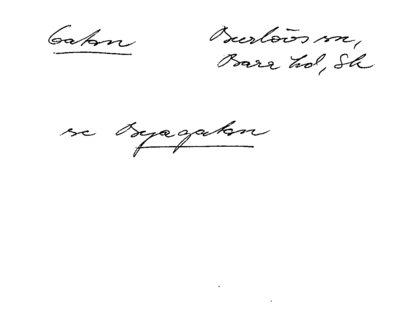 Gatan Burlövs sn,
Bara hd, Sk
se Byagatan